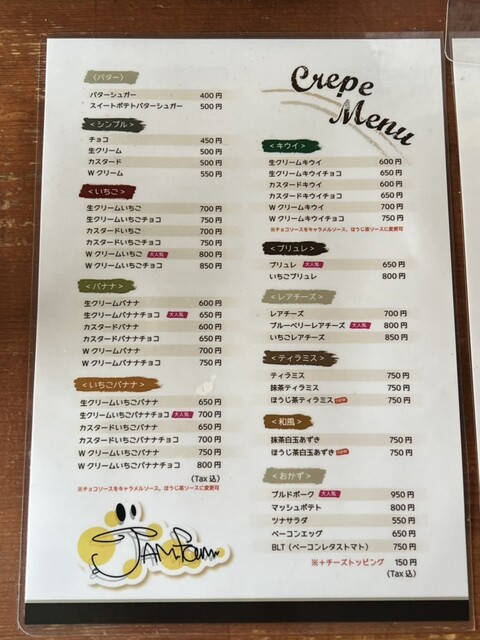 Crepe
Menu
〈バター〉
バターシュガー 400円
スイートポテトバターシュガー 500円
<シンプル>
チョコ 450円
生クリーム 500円
カスタード 500円
Wクリーム 550円
<いちご>
生クリームいちご 700円
生クリームいちごチョコ 750円
カスタードいちご 700円
カスタードいちごチョコ 750円
Wクリームいちご 大人気 800円
Wクリームいちごチョコ 850円
<バナナ>
生クリームバナナ 600円
生クリームバナナチョコ 大人気 650円
カスタードバナナ 600円
カスタードバナナチョコ 650円
Wクリームバナナ 700円
Wクリームバナナチョコ 750円
<いちごバナナ>
生クリームいちごバナナ 650円
生クリームいちごバナナチョコ 大人気 700円
カスタードいちごバナナ 650円
カスタードいちごバナナチョコ 700円
Wクリームいちごバナナ 750円
Wクリームいちごバナナチョコ 800円
(Tax込)
※チョコソースをキャラメルソース、ほうじ茶ソースに変更可
JAMBun
<キウイ>
生クリームキウイ 600円
生クリームキウイチョコ 650円
カスタードキウイ 600円
カスタードキウイチョコ 650円
Wクリームキウイ 700円
Wクリームキウイチョコ 750円
※チョコソースをキャラメルソース、ほうじ茶ソースに変更可
<ブリュレ>
ブリュレ 大人気 650円
いちごブリュレ 800円
<レアチーズ>
レアチーズ 700円
ブルーベリーレアチーズ 大人気 800円
いちごレアチーズ 850円
<ティラミス>
ティラミス 750円
抹茶ティラミス 750円
ほうじ茶ティラミス new 750円
<和風>
抹茶白玉あずき 750円
ほうじ茶白玉あずき new 750円
<おかず>
プルドポーク 大人気 950円
マッシュポテト 800円
ツナサラダ 550円
ベーコンエッグ 650円
BLT（ベーコンレタストマト） 750円
※+チーズトッピング 150円
(Tax込)